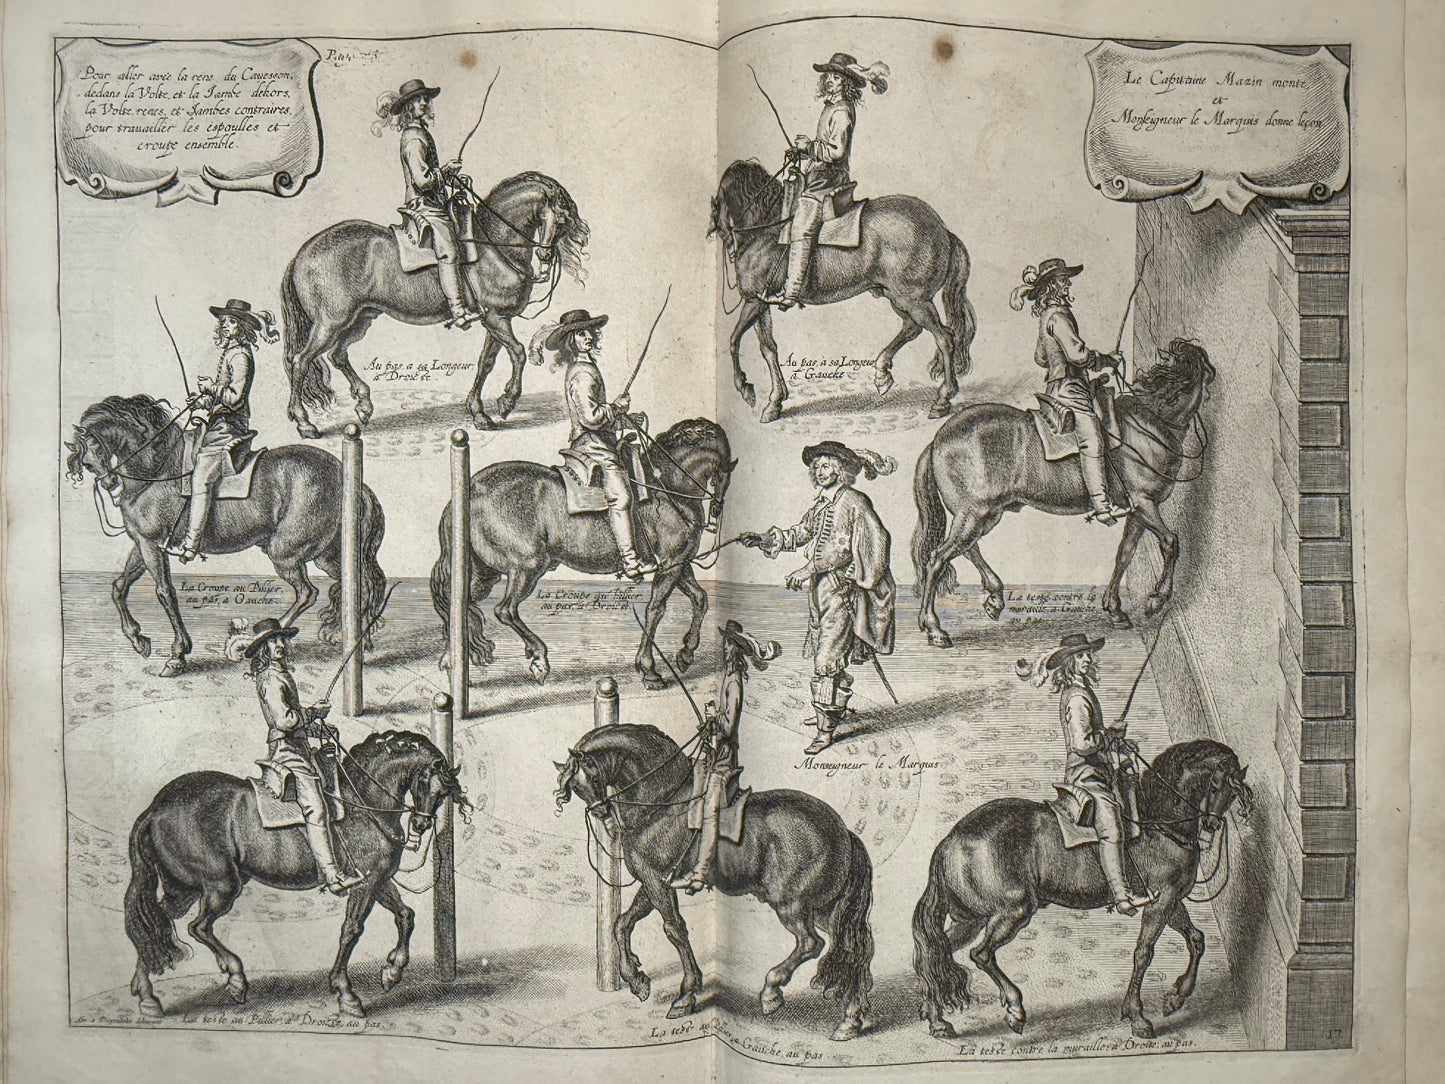 Pour aller avec la rene du Cavesson,
dedans la Volte, et la Jambe dehors,
la Volte, renes, et Jambes contraires,
pour travailler les espaulles et
croupe ensemble.
Le Capitaine Mazin monte,
et
Monseigneur le Marquis donne leçon
Au pas, a sa Longeur,
a Droicte.
Au pas, a sa Longeur
a Gauche
La Croupe au Pillier,
au pas, a Gauche.
La Croupe au Pillier
au pas, a Droicte
La teste contre la
muraille, a Gauche
au pas
Monseigneur le Marquis
La teste au Pillier, a Droicte, au pas.
La teste au Gauche, au pas
La teste contre la muraille, a Droite, au pas.
17